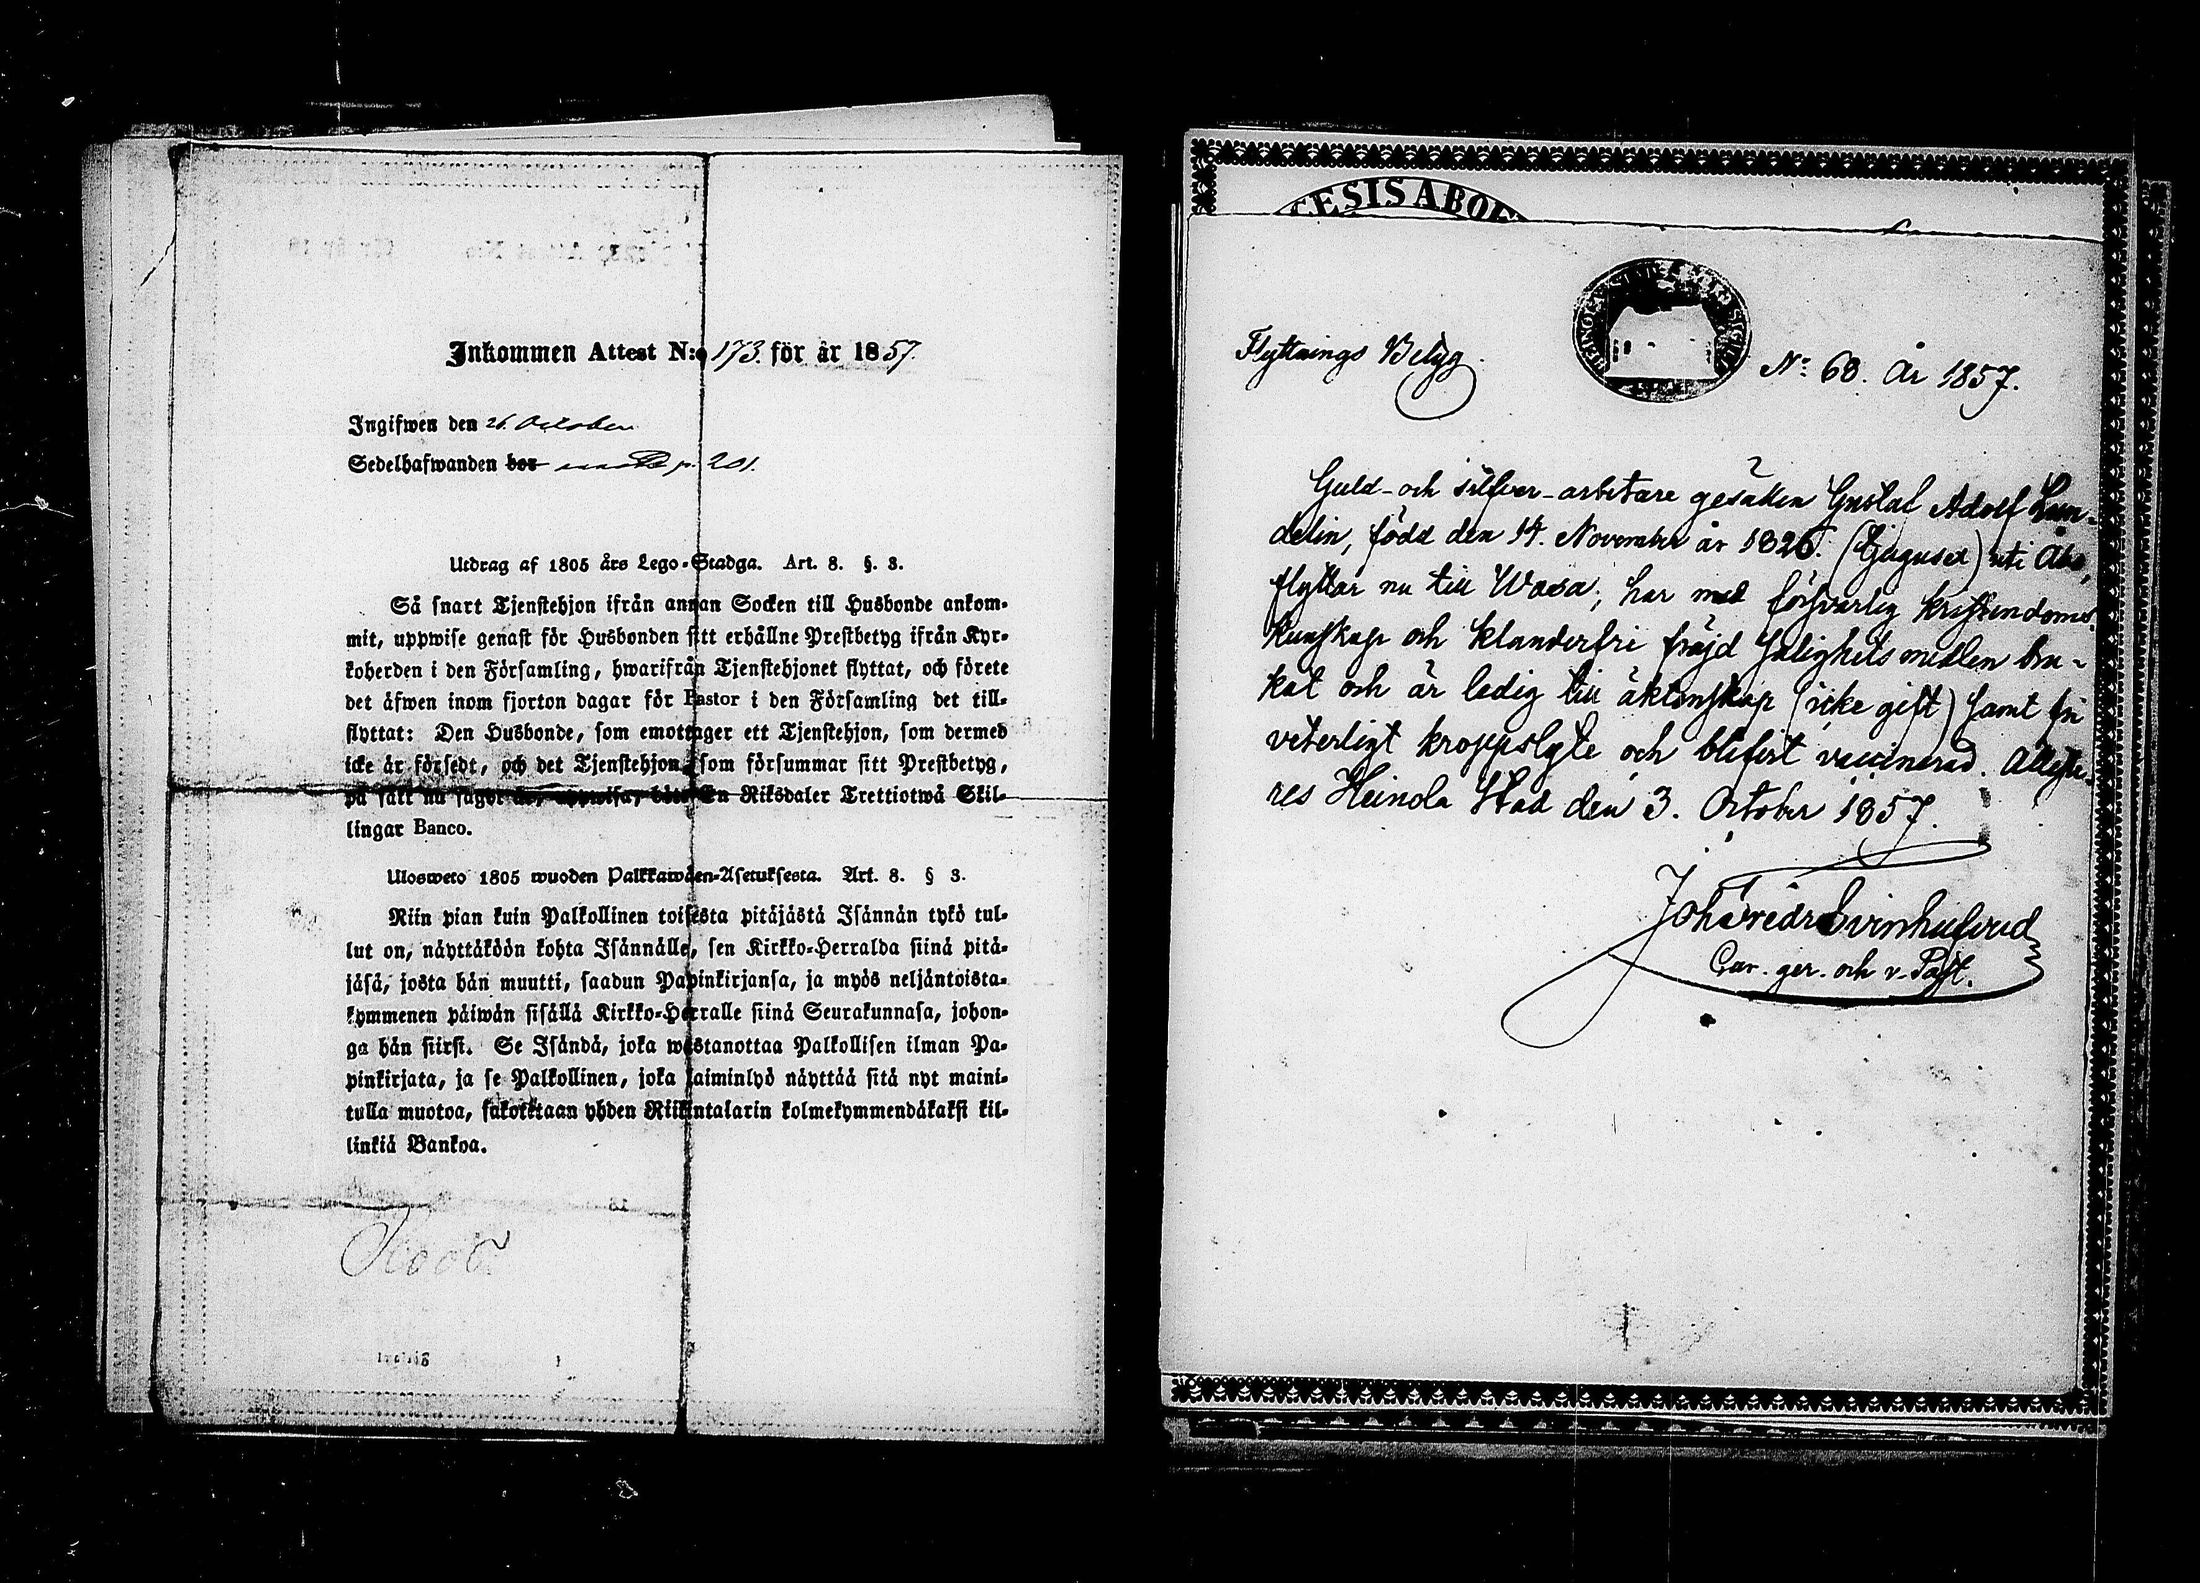 Inkommen Attest N:o 173. för år 1857.
Ingifwen den 26 October
Sedelhafwanden bor p. 201.
Utdrag af 1805 års Lego-Stadga. Art. 8. §. 3.
Så snart Tjenstehjon ifrån annan Socken till Husbonde ankom-
mit, uppwise genast för Husbonden sitt erhållne Prestbetyg ifrån Kyr-
koherden i den Församling, hwarifrån Tjenstehjonet flyttat, och förete
det äfwen inom fjorton dagar för Pastor i den Församling det till-
flyttat: Den Husbonde, som emottager ett Tjenstehjon, som dermed
icke är försedt, och det Tjenstehjon, som försummar sitt Prestbetyg,
på sätt nu sagdt är, uppwisa, böte En Riksdaler Trettiotwå Skil-
lingar Banco.
Ulosweto 1805 wuoden Palkkawäen-Asetuksesta. Art. 8. § 3.
Niin pian kuin Palkollinen toisesta pitäjästä Isännän tykö tul-
lut on, näyttäköön kohta Isännälle, sen Kirkko-Herralda siinä pitä-
jäsä, josta hän muutti, saadun Papinkirjansa, ja myös neljäntoista-
kymmenen päiwän sisällä Kirkko-Herralle siinä Seurakunnasa, johon-
ga hän siirsi. Se Isändä, joka wastanottaa Palkollisen ilman Pa-
pinkirjata, ja se Palkollinen, joka laiminlyö näyttää sitä nyt maini-
tulla muotoa, sakotetaan yhden Riikintalarin kolmekymmendäkaksi kil-
linkiä Bankoa.
CESIS ABOE
Flyttnings Betyg. N:o 68. År 1857.
Guld- och silfver-arbetare gesällen Gustaf Adolf Lun-
delin, född den 14. November år 1826. (tjugusex) uti Åbo,
flyttar nu till Wasa; har med försvarlig kristendoms-
kunskap och klanderfri fräjd salighetsmedlen bru-
kat och är ledig till äktenskap (icke gift) samt fri
veterligt kroppslyte och blifvit vaccinerad. Atteste-
res Heinola Stad den 3. October 1857.
Joh Fredr Svinhufvud
Cur. ger. och v. Past.